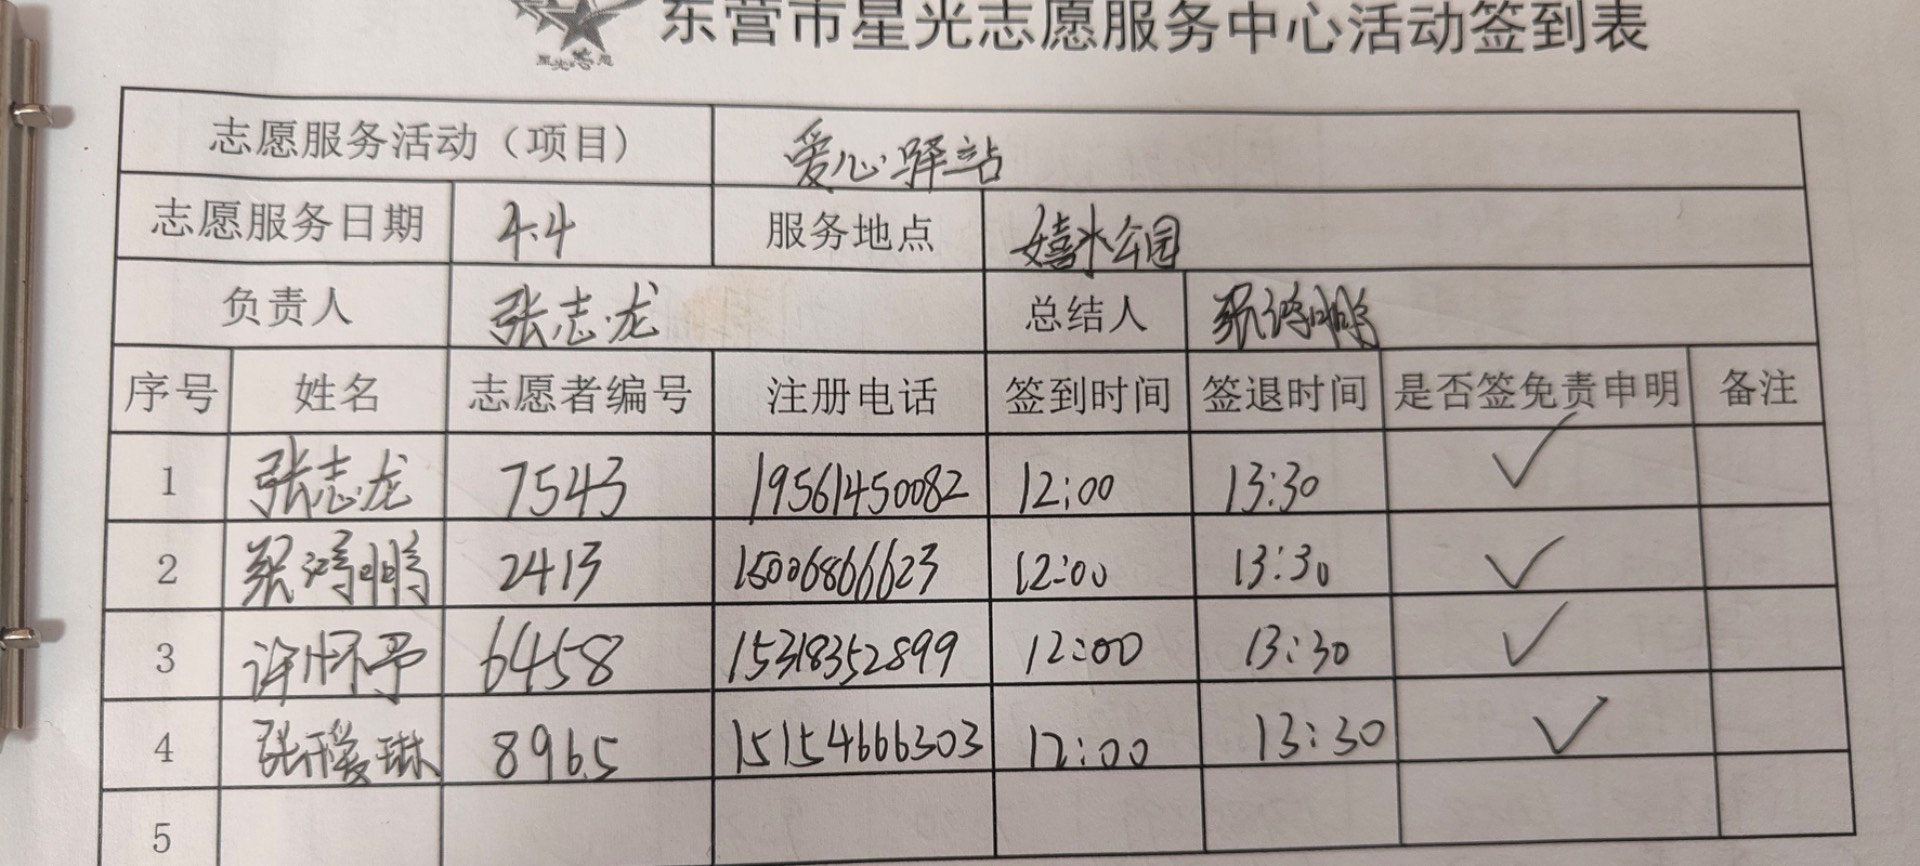 东营市星光志愿服务中心活动签到表
星光志愿
志愿服务活动（项目） 爱心驿站
志愿服务日期 4.4 服务地点 嬉水公园
负责人 张志龙 总结人
序号 姓名 志愿者编号 注册电话 签到时间 签退时间 是否签免责申明 备注
1 张志龙 7543 19561450082 12:00 13:30 ✓
2 2413 15006866623 12:00 13:30 ✓
3 许怀予 6458 15318352899 12:00 13:30 ✓
4 张瑷琳 8965 15154666303 12:00 13:30 ✓
5